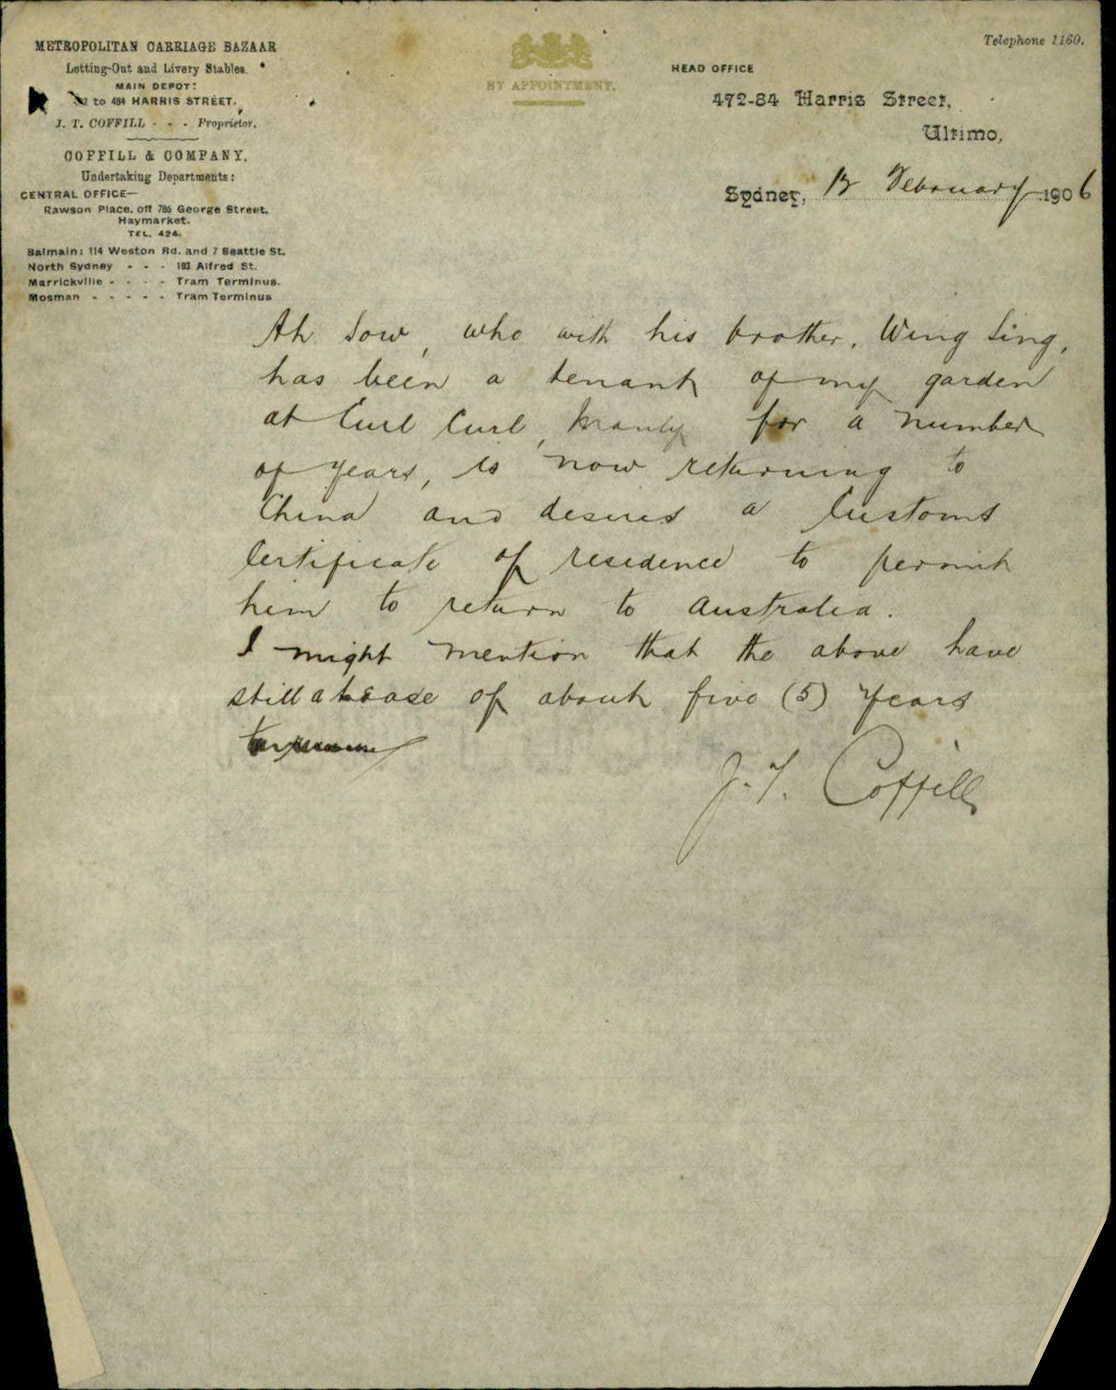 METROPOLITAN CARRIAGE BAZAAR
Letting-Out and Livery Stables.
MAIN DEPOT:
to 484 HARRIS STREET.
J. T. COFFILL - - - Proprietor.
COFFILL & COMPANY,
Undertaking Departments:
CENTRAL OFFICE—
Rawson Place, off 785 George Street,
Haymarket.
TEL. 424.
Balmain: 114 Weston Rd. and 7 Beattie St.
North Sydney - - - 193 Alfred St.
Marrickville - - - - Tram Terminus.
Mosman - - - - - Tram Terminus
BY APPOINTMENT.
Telephone 1160.
HEAD OFFICE
472-84 Harris Street,
Ultimo,
Sydney, February 1906
Ah Sow, who with his brother, Wing Sing,
has been a tenant of my garden
at Curl Curl, Manly for a number
of years, is now returning to
China and desires a Customs
Certificate of residence to permit
him to return to Australia.
I might mention that the above have
still a lease of about five (5) years
J. T. Coffill